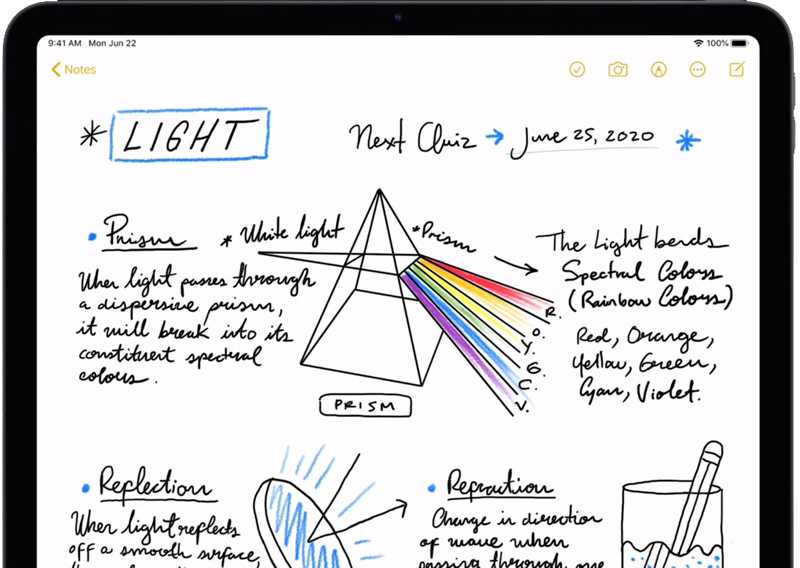 9:41 AM Mon Jun 22
100%
Notes
* LIGHT
Next Quiz → June 25, 2020 *
• Prism
When light passes through
a dispersive prism,
it will break into its
constituent spectral
colours.
* White light
* Prism
The Light bends
Spectral Colors
(Rainbow Colors)
Red, Orange,
Yellow, Green,
Cyan, Violet.
R.
O.
Y.
G.
C.
V.
PRISM
• Reflection
When light reflects
off a smooth surface,
• Refraction
Change in direction
of wave when
passing through one